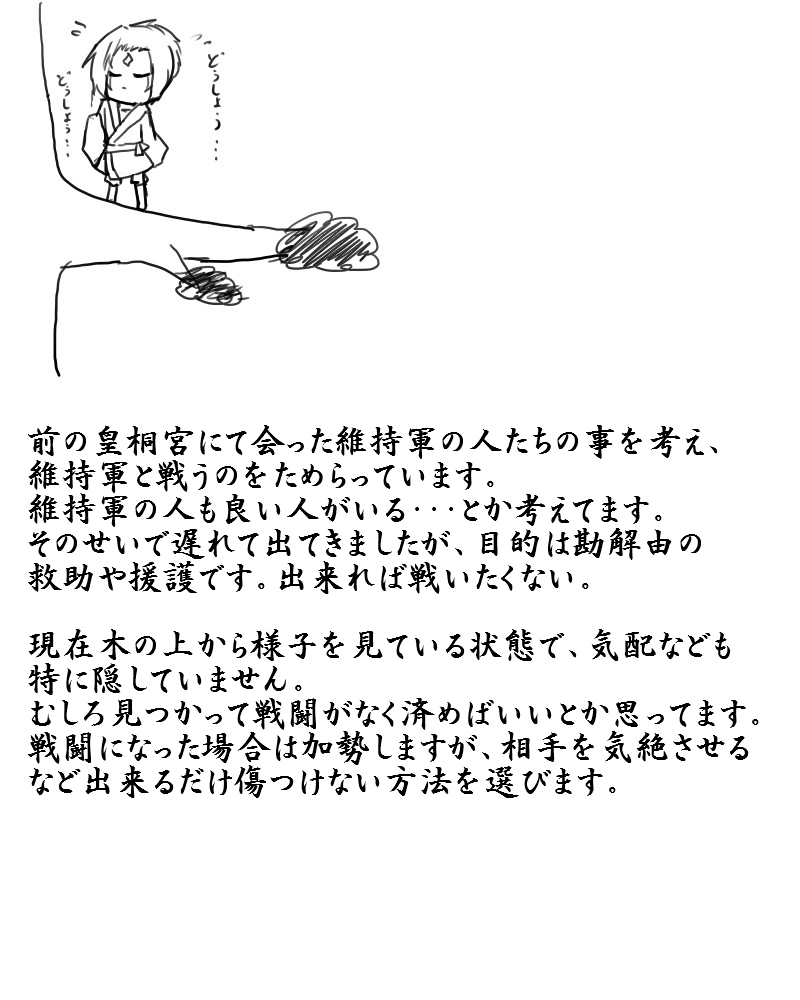 どうしよう・・・
どうしよう・・・
前の皇桐宮にて会った維持軍の人たちの事を考え、
維持軍と戦うのをためらっています。
維持軍の人も良い人がいる・・・とか考えてます。
そのせいで遅れて出てきましたが、目的は勘解由の
救助や援護です。出来れば戦いたくない。
現在木の上から様子を見ている状態で、気配なども
特に隠していません。
むしろ見つかって戦闘がなく済めばいいとか思ってます。
戦闘になった場合は加勢しますが、相手を気絶させる
など出来るだけ傷つけない方法を選びます。